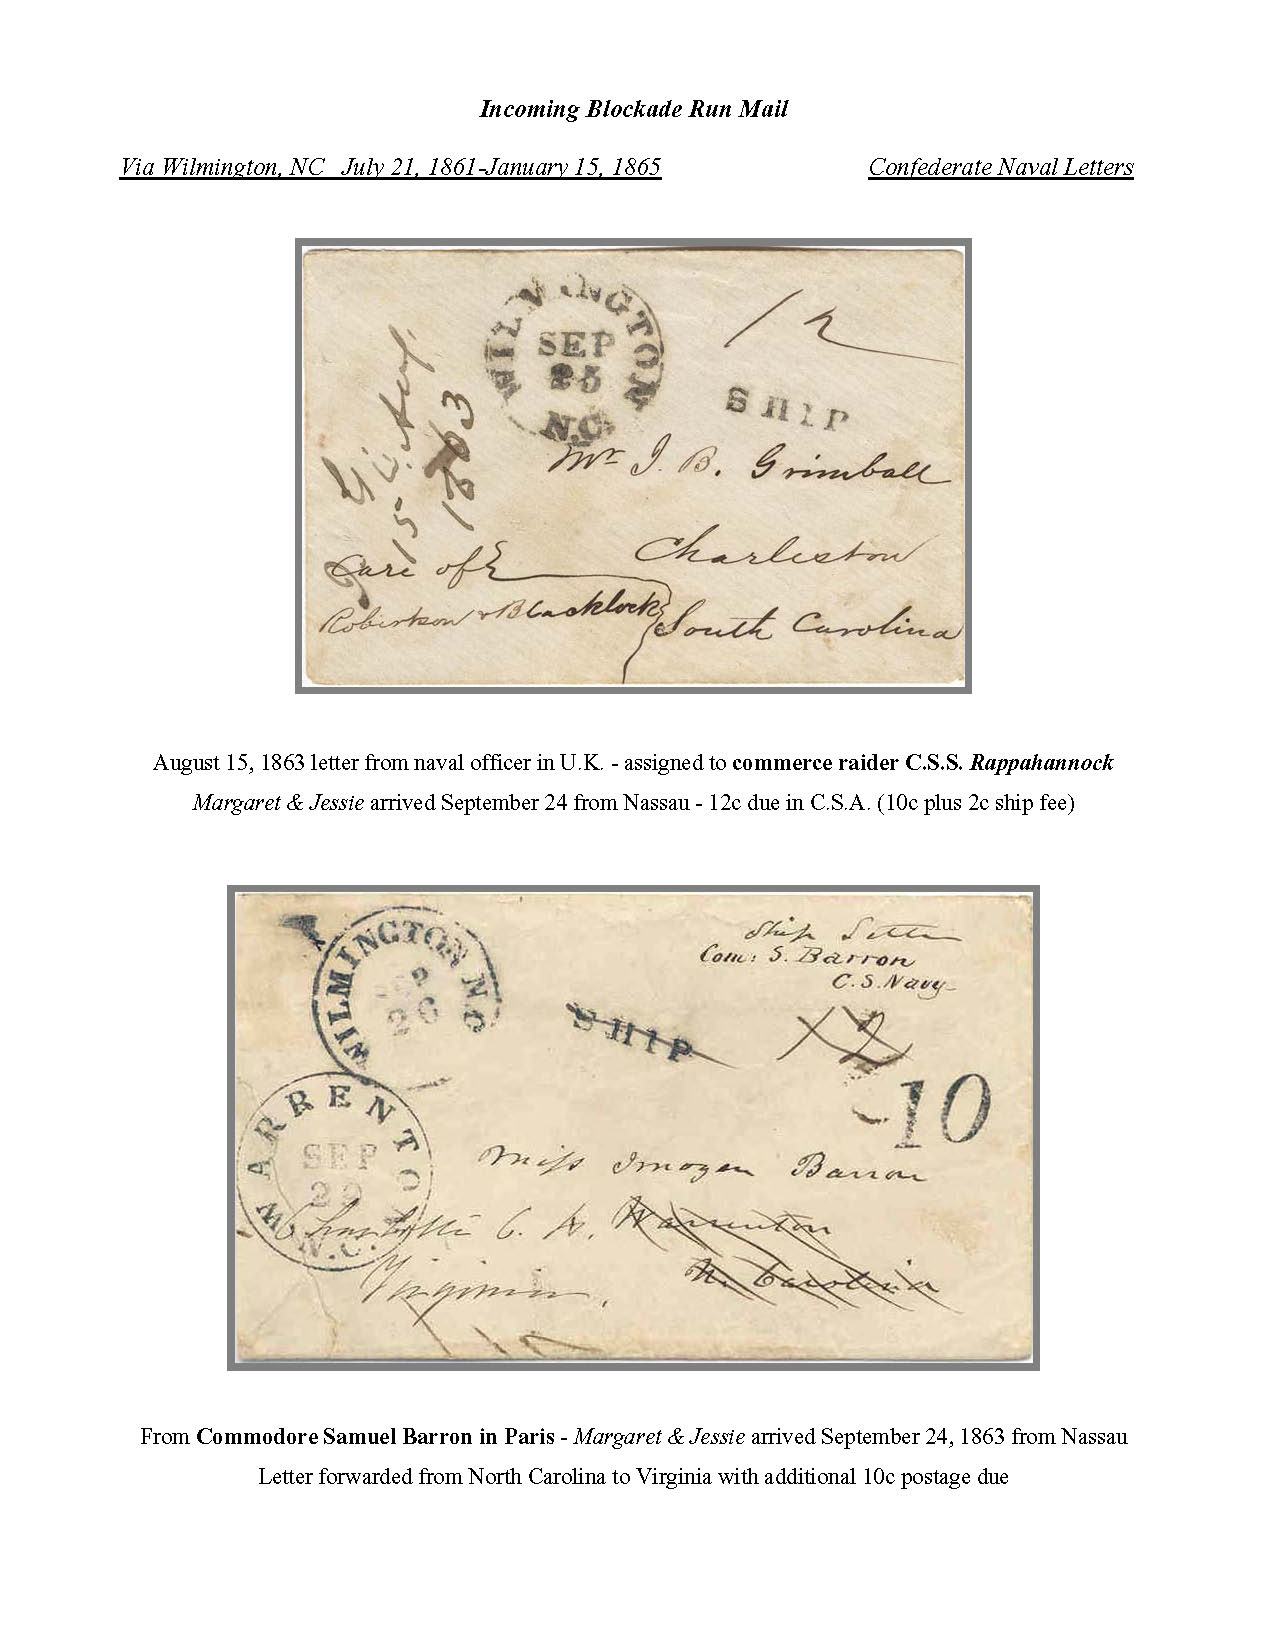 Incoming Blockade Run Mail
Via Wilmington, NC   July 21, 1861-January 15, 1865
Confederate Naval Letters
WILMINGTON
SEP
25
N.C.
12
SHIP
15
1863
Mr J. B. Grimball
Care of
Charleston
Robertson & Blacklock
South Carolina
August 15, 1863 letter from naval officer in U.K. - assigned to commerce raider C.S.S. Rappahannock
Margaret & Jessie arrived September 24 from Nassau - 12c due in C.S.A. (10c plus 2c ship fee)
Ship Letter
Com: S. Barron
C.S. Navy
WILMINGTON N.C
SEP
26
SHIP
12
10
WARRENTON
SEP
29
N.C.
Miss Imogen Barron
Charlotte C. H. Warrenton
N. Carolina
Virginia.
From Commodore Samuel Barron in Paris - Margaret & Jessie arrived September 24, 1863 from Nassau
Letter forwarded from North Carolina to Virginia with additional 10c postage due